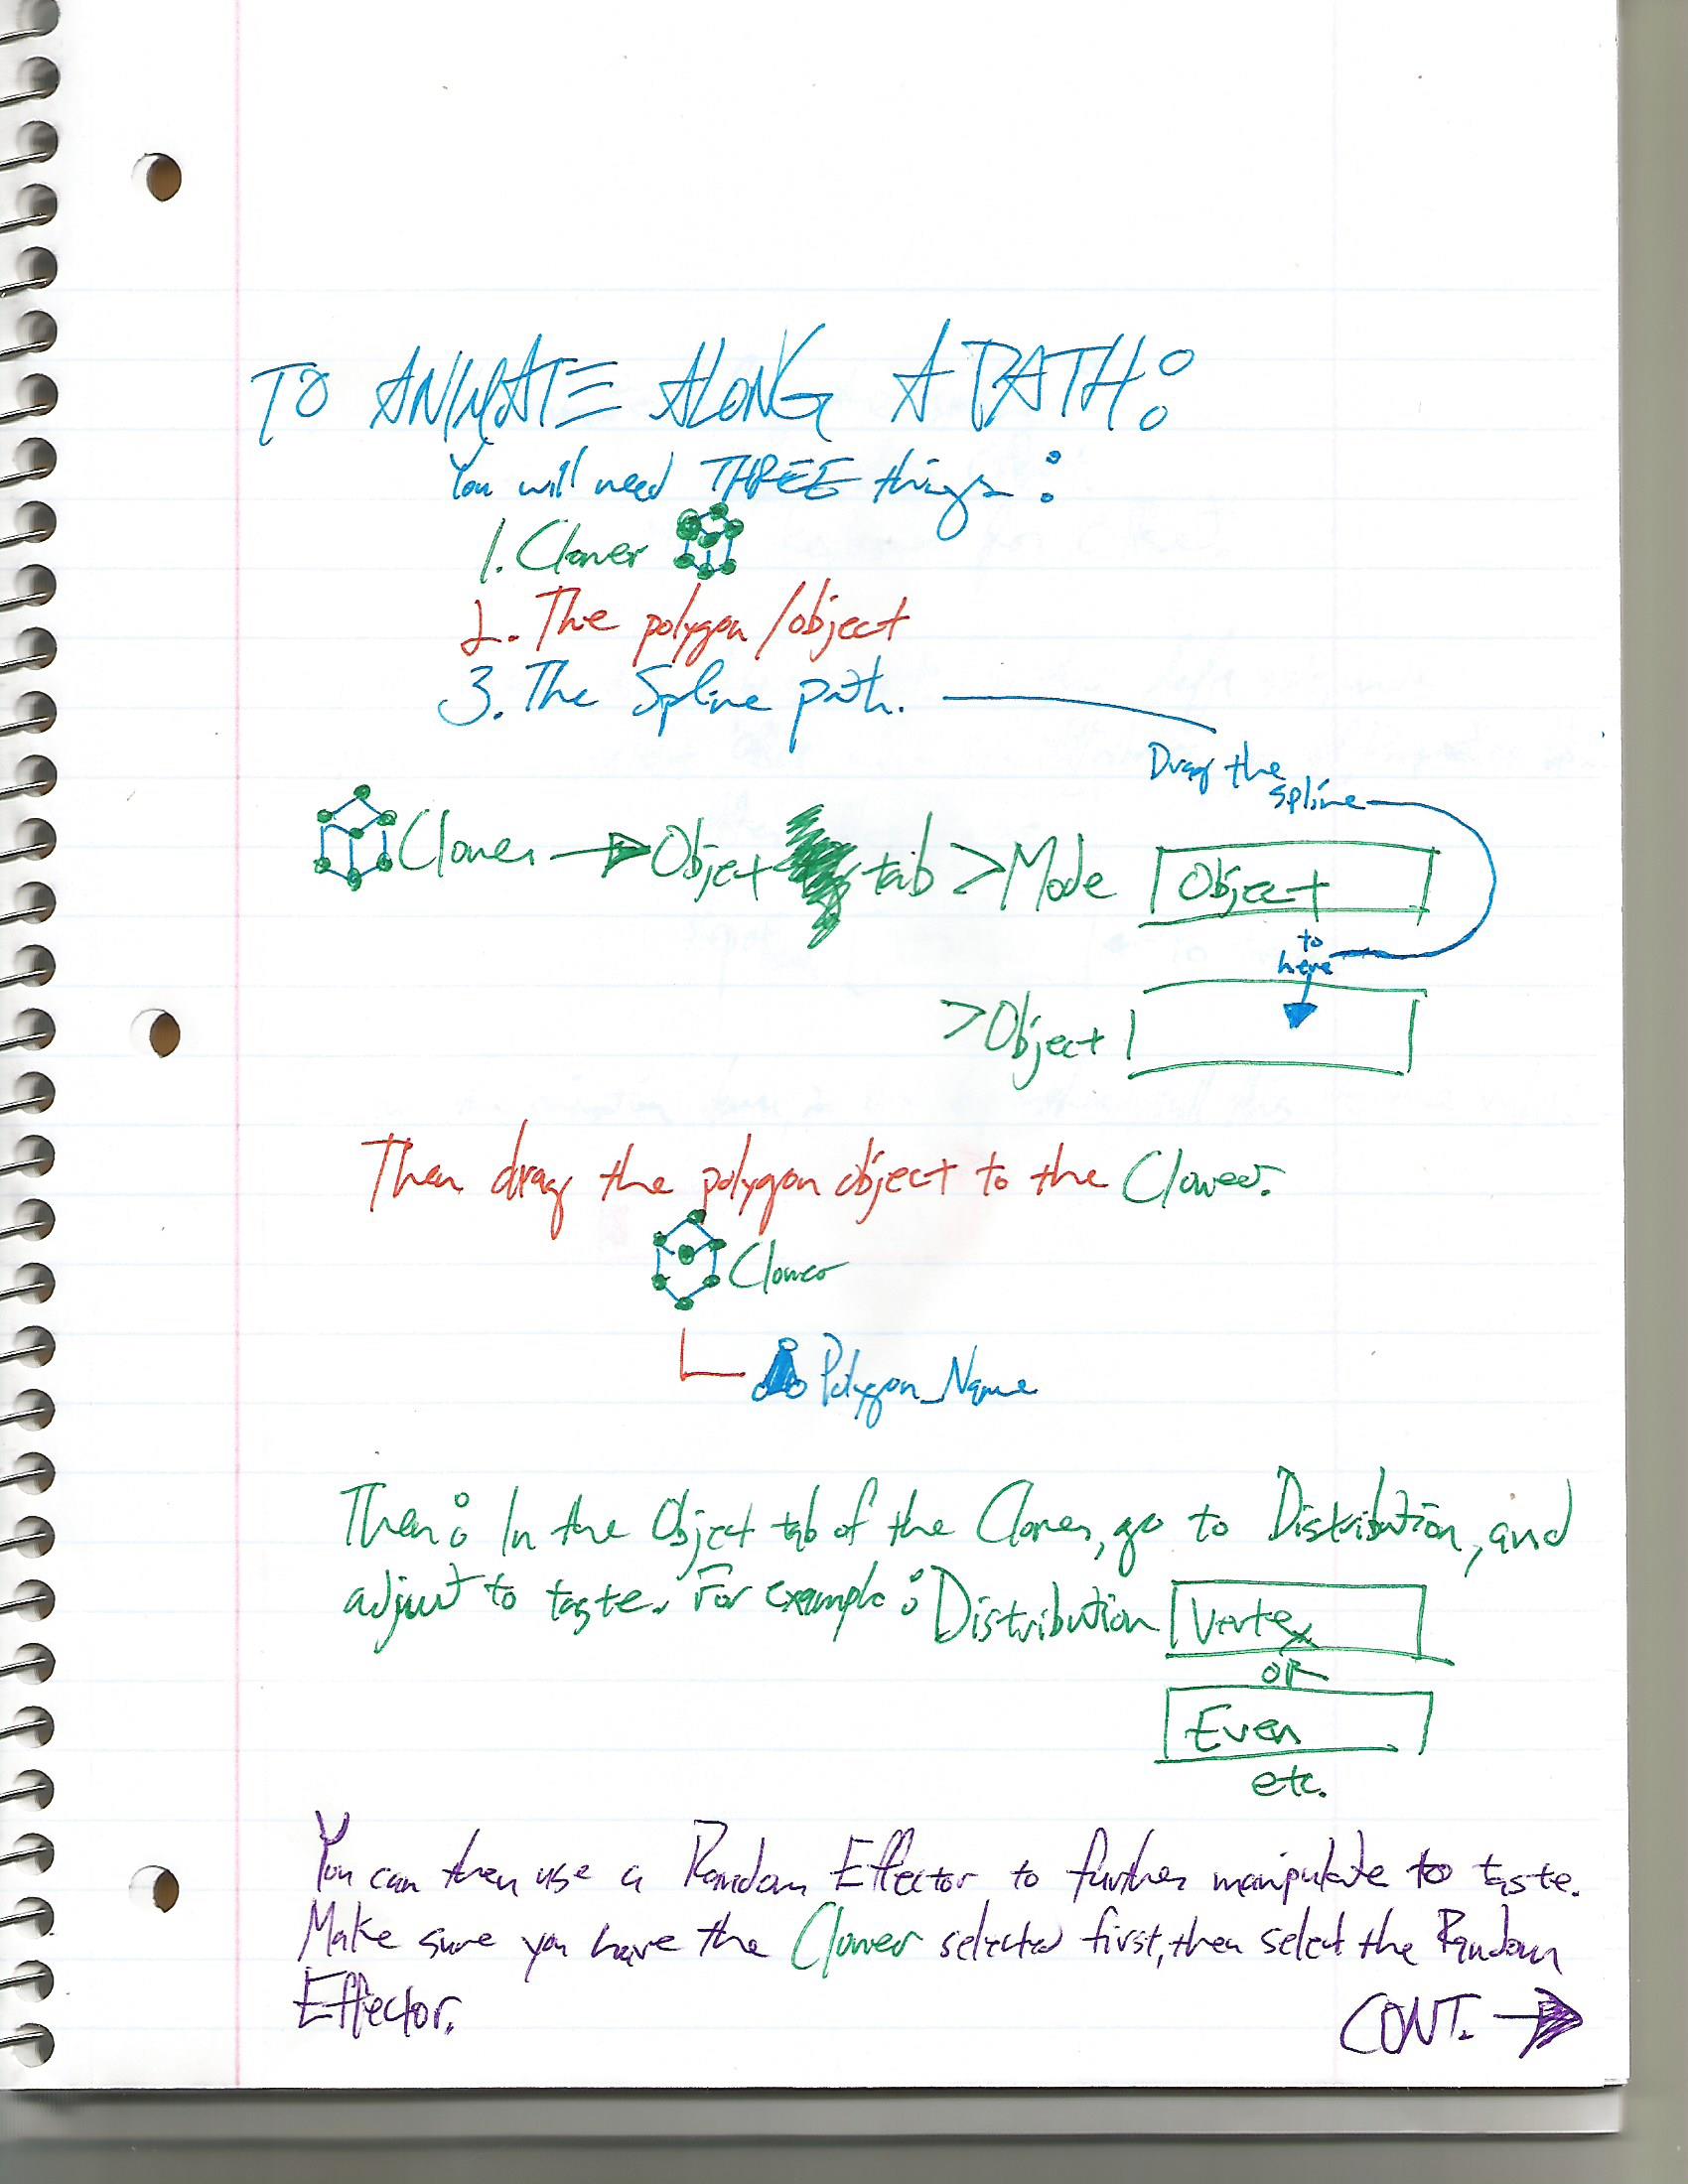 TO ANIMATE ALONG A PATH:
You will need THREE things:
1. Cloner
2. The polygon/object
3. The Spline path.
Drag the
spline
Cloner → Object tab > Mode Object
to
here
> Object
Then drag the polygon object to the Cloner.
Cloner
Polygon_Name
Then: In the Object tab of the Cloner, go to Distribution, and
adjust to taste. For example: Distribution Vertex
or
Even
etc.
You can then use a Random Effector to further manipulate to taste.
Make sure you have the Cloner selected first, then select the Random
Effector.
CONT. →